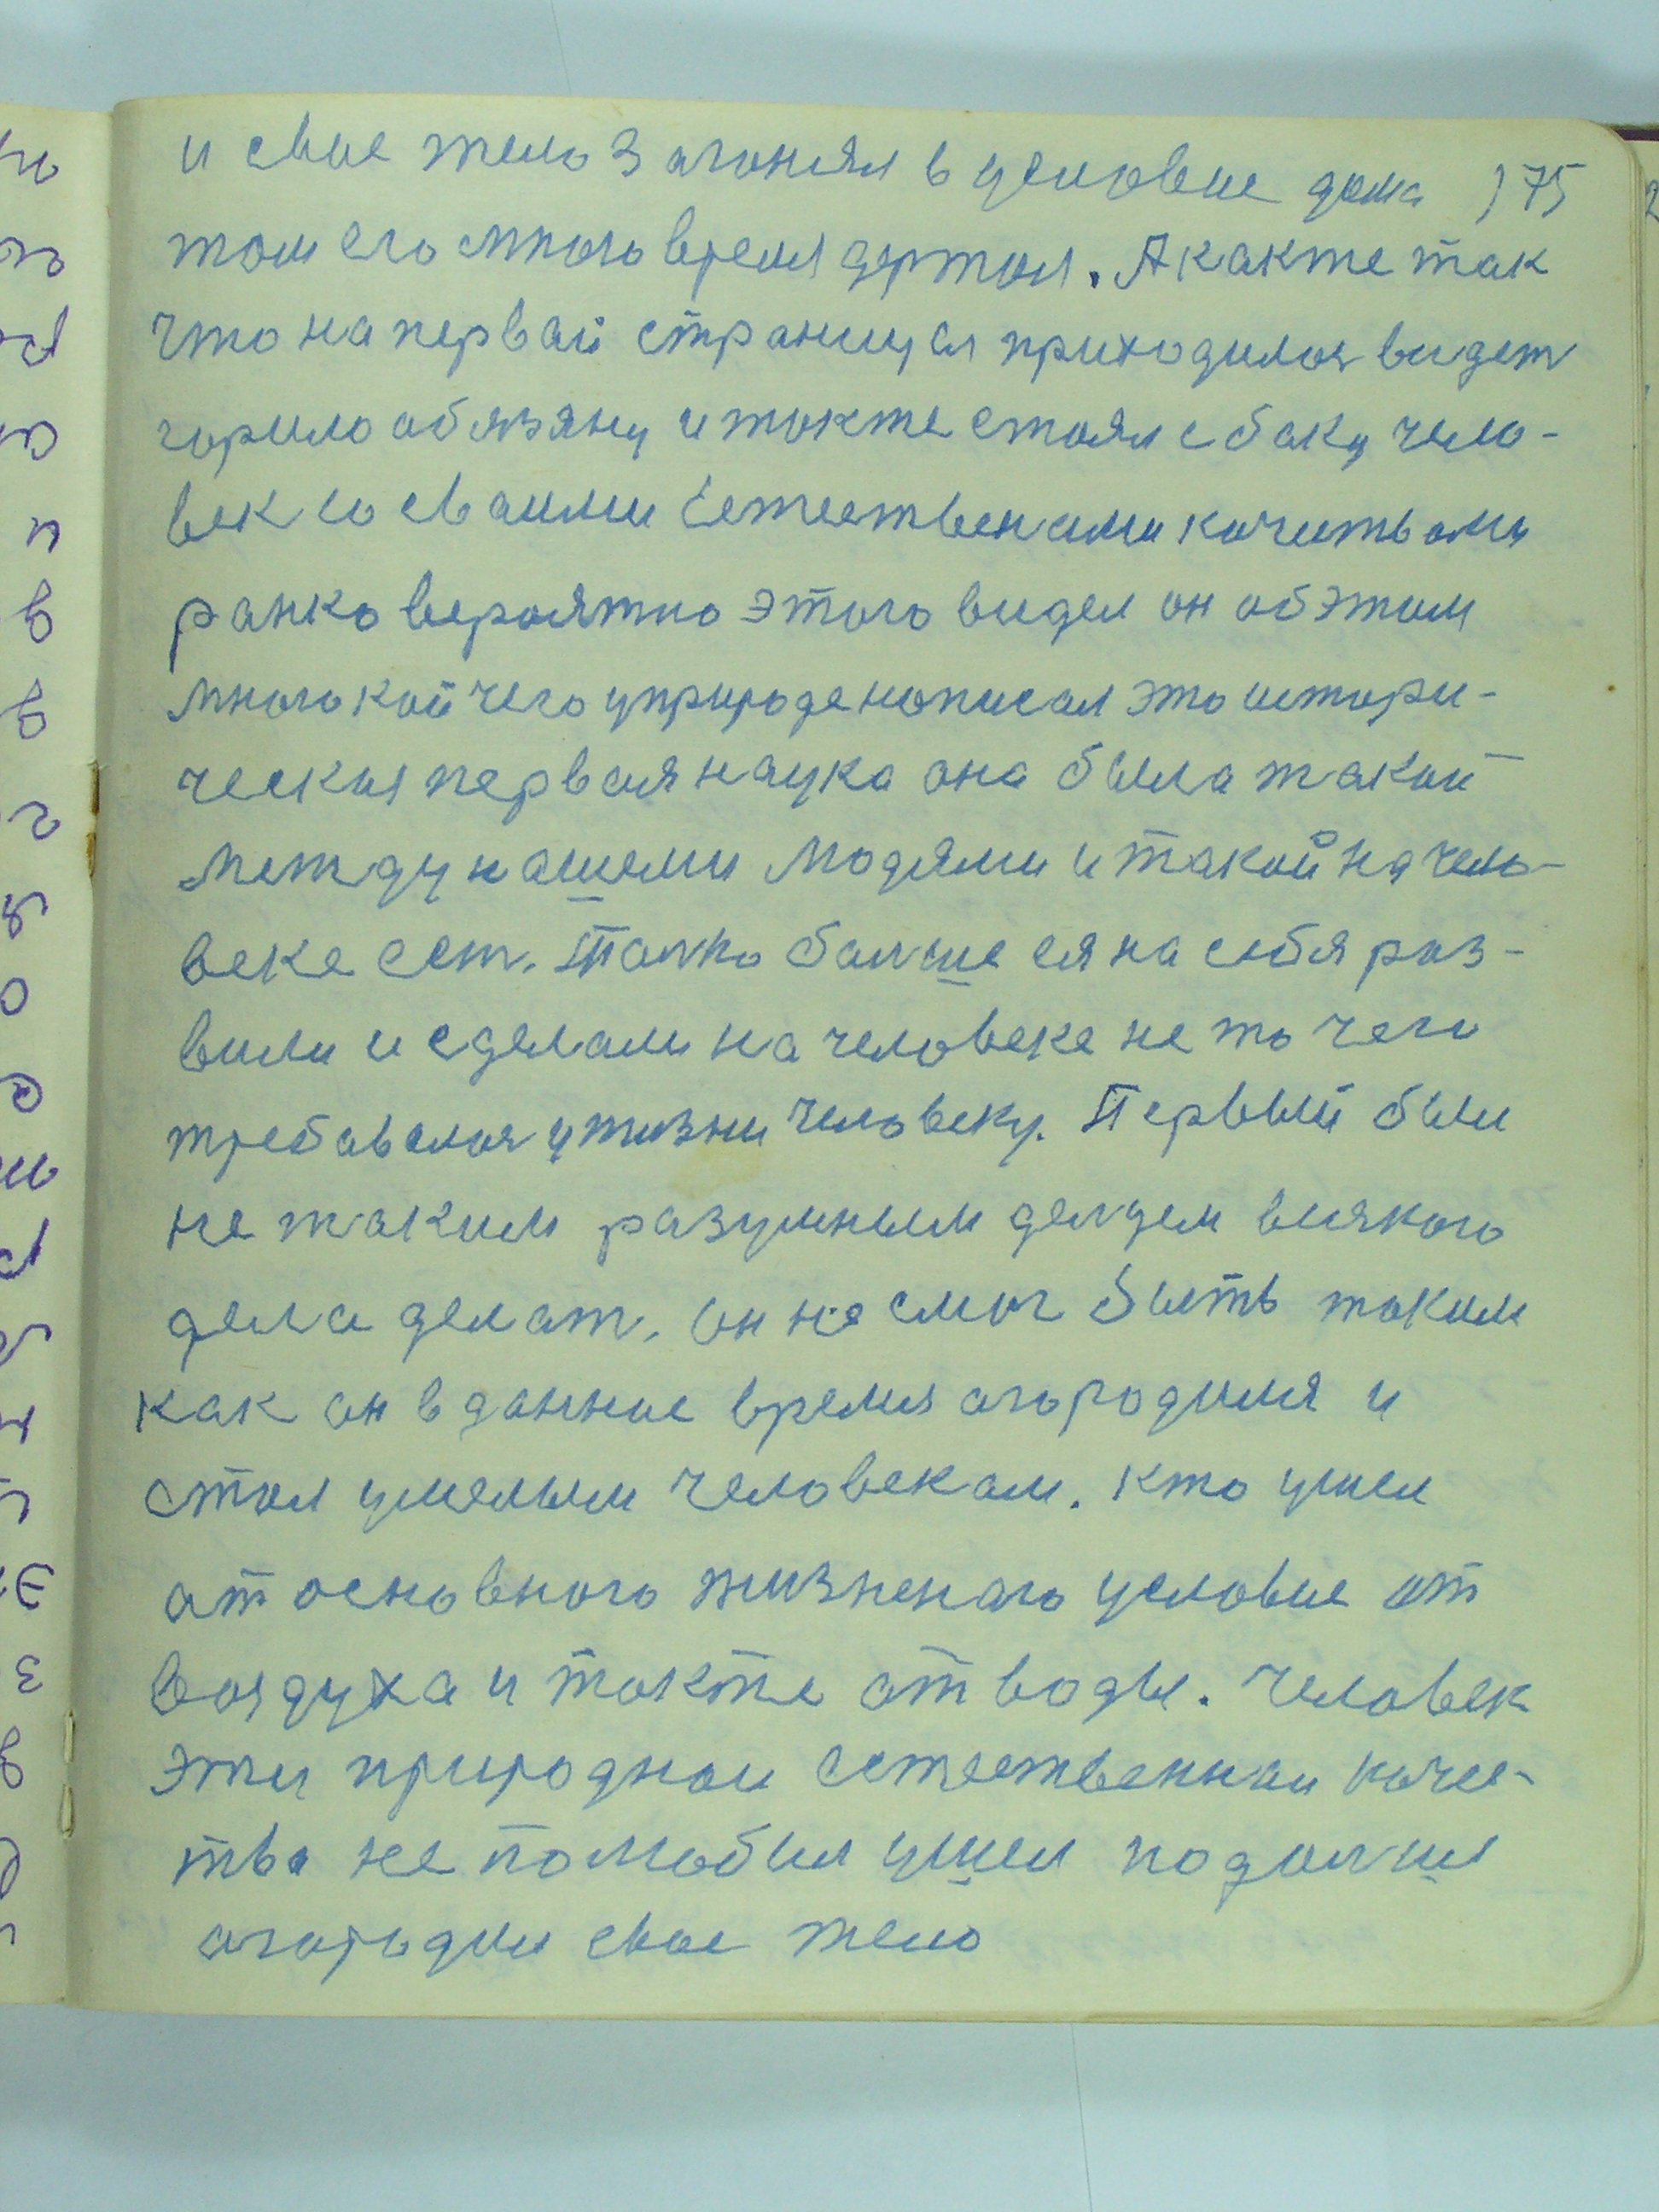 и свое тело загонял в условие дома 175
том его много время держал. А как же так
что на первай страницы приходилося видет
горило абязяну и также стоял сбаку чело-
век со сваими Естественами качествами
ранко вероятно этого видел он об этом
много кой чего у природе написал это истори-
ческия первая наука она была такой
между нашеми людями и такой на чело-
веке ест. Толко болше ея на себя раз-
вили и сделали на человеке не то чего
требавалося у жизни человеку. Первый был
не таким разумным делцем всякого
дела делат. он не смог быть таким
как он в данное время агородился и
стал умелым человекам. кто ушел
ат основного жизненаго условие от
воздуха и также ат воды. человек
эти природнои естественнаи качес-
тва не полюбил ушел подалше
агородил свое тело